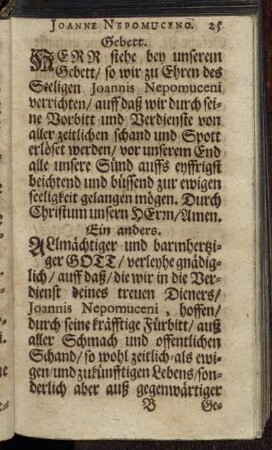 JOANNE NEPOMUCENO. 25
Gebett.
HERR stehe bey unserem
Gebett/ so wir zu Ehren des
Seeligen Joannis Nepomuceni
verrichten/ auff daß wir durch sei-
ne Vorbitt und Verdienste von
aller zeitlichen schand und Spott
erlöset werden/ vor unserem End
alle unsere Sünd auffs eyffrigst
beichtend und büssend zur ewigen
seeligkeit gelangen mögen. Durch
Christum unsern HErrn/Amen.
Ein anders.
ALlmächtiger und barmhertzi-
ger GOTT/ verleyhe gnädig-
lich/ auff daß/ die wir in die Ver-
dienst deines treuen Dieners/
Joannis Nepomuceni, hoffen/
durch seine kräfftige Fürbitt/ auß
aller Schmach und offentlichen
Schand/ so wohl zeitlich als ewi-
gen/und zukünfftigen Lebens/son-
derlich aber auß gegenwärtiger
B Ge-